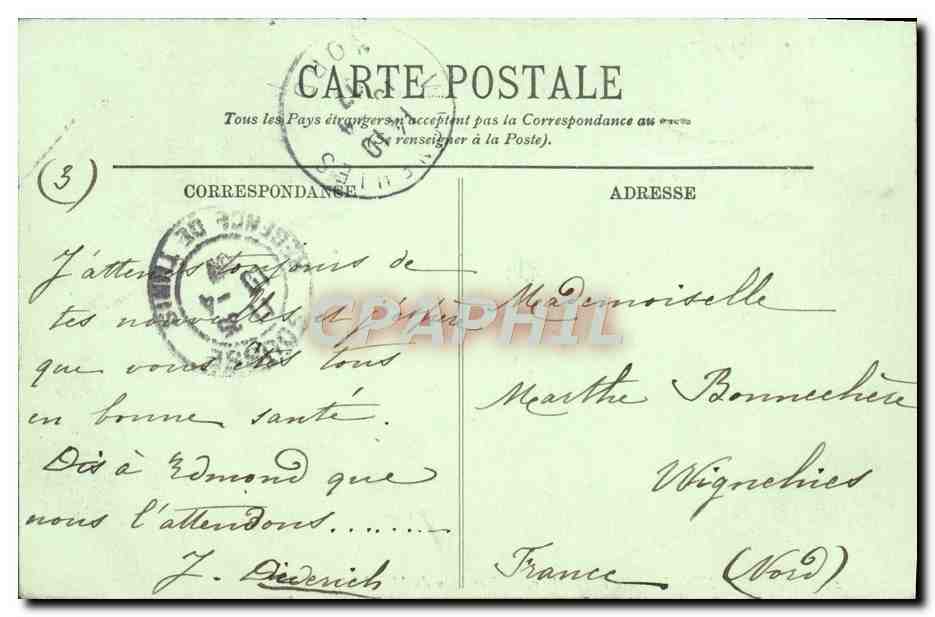 CARTE POSTALE
Tous les Pays étrangers n'acceptent pas la Correspondance au
(Se renseigner à la Poste).
(3)
CORRESPONDANCE
J'attends toujours de
tes nouvelles et j'espère
que vous êtes tous
en bonne santé.
Dis à Edmond que
nous l'attendons........
J. Diderich
ADRESSE
Mademoiselle
Marthe Bonnechère
Wignehies
France (Nord)
REGENCE DE TUNIS
CPAPHIL